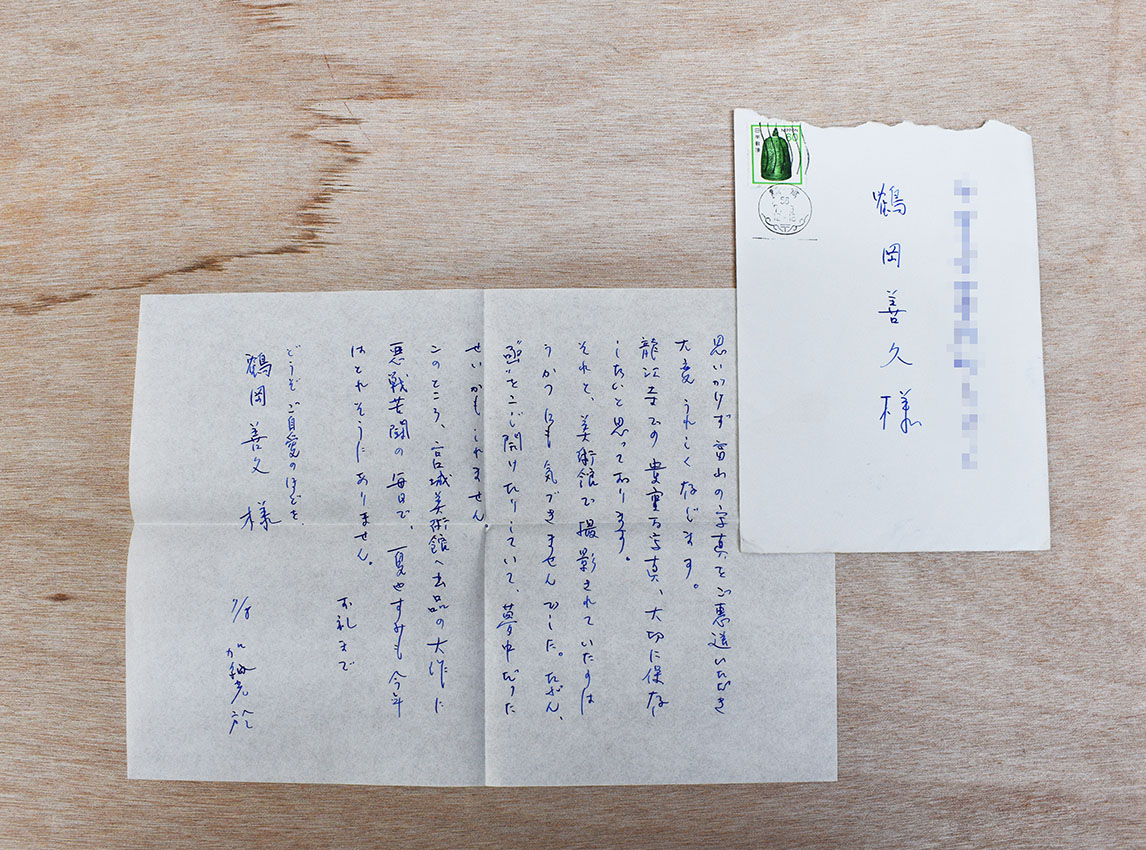 思いがけず富山の写真をご恵送いただき
大変うれしく存じます。
龍江寺での貴重な写真、大切に保存
したいと思っております。
それと、美術館で撮影されていたのは
うかつにも気づきませんでした。たぶん、
"函"をこじ開けたりしていて、夢中だった
せいかもしれません
このところ、宮城美術館へ出品の大作に
悪戦苦闘の毎日で、夏やすみも今年
はとれそうにありません。
お礼まで
どうぞご自愛のほどを、
7/8 加納光於
鶴岡善久様
日本郵便
NIPPON
60
鶴岡善久様